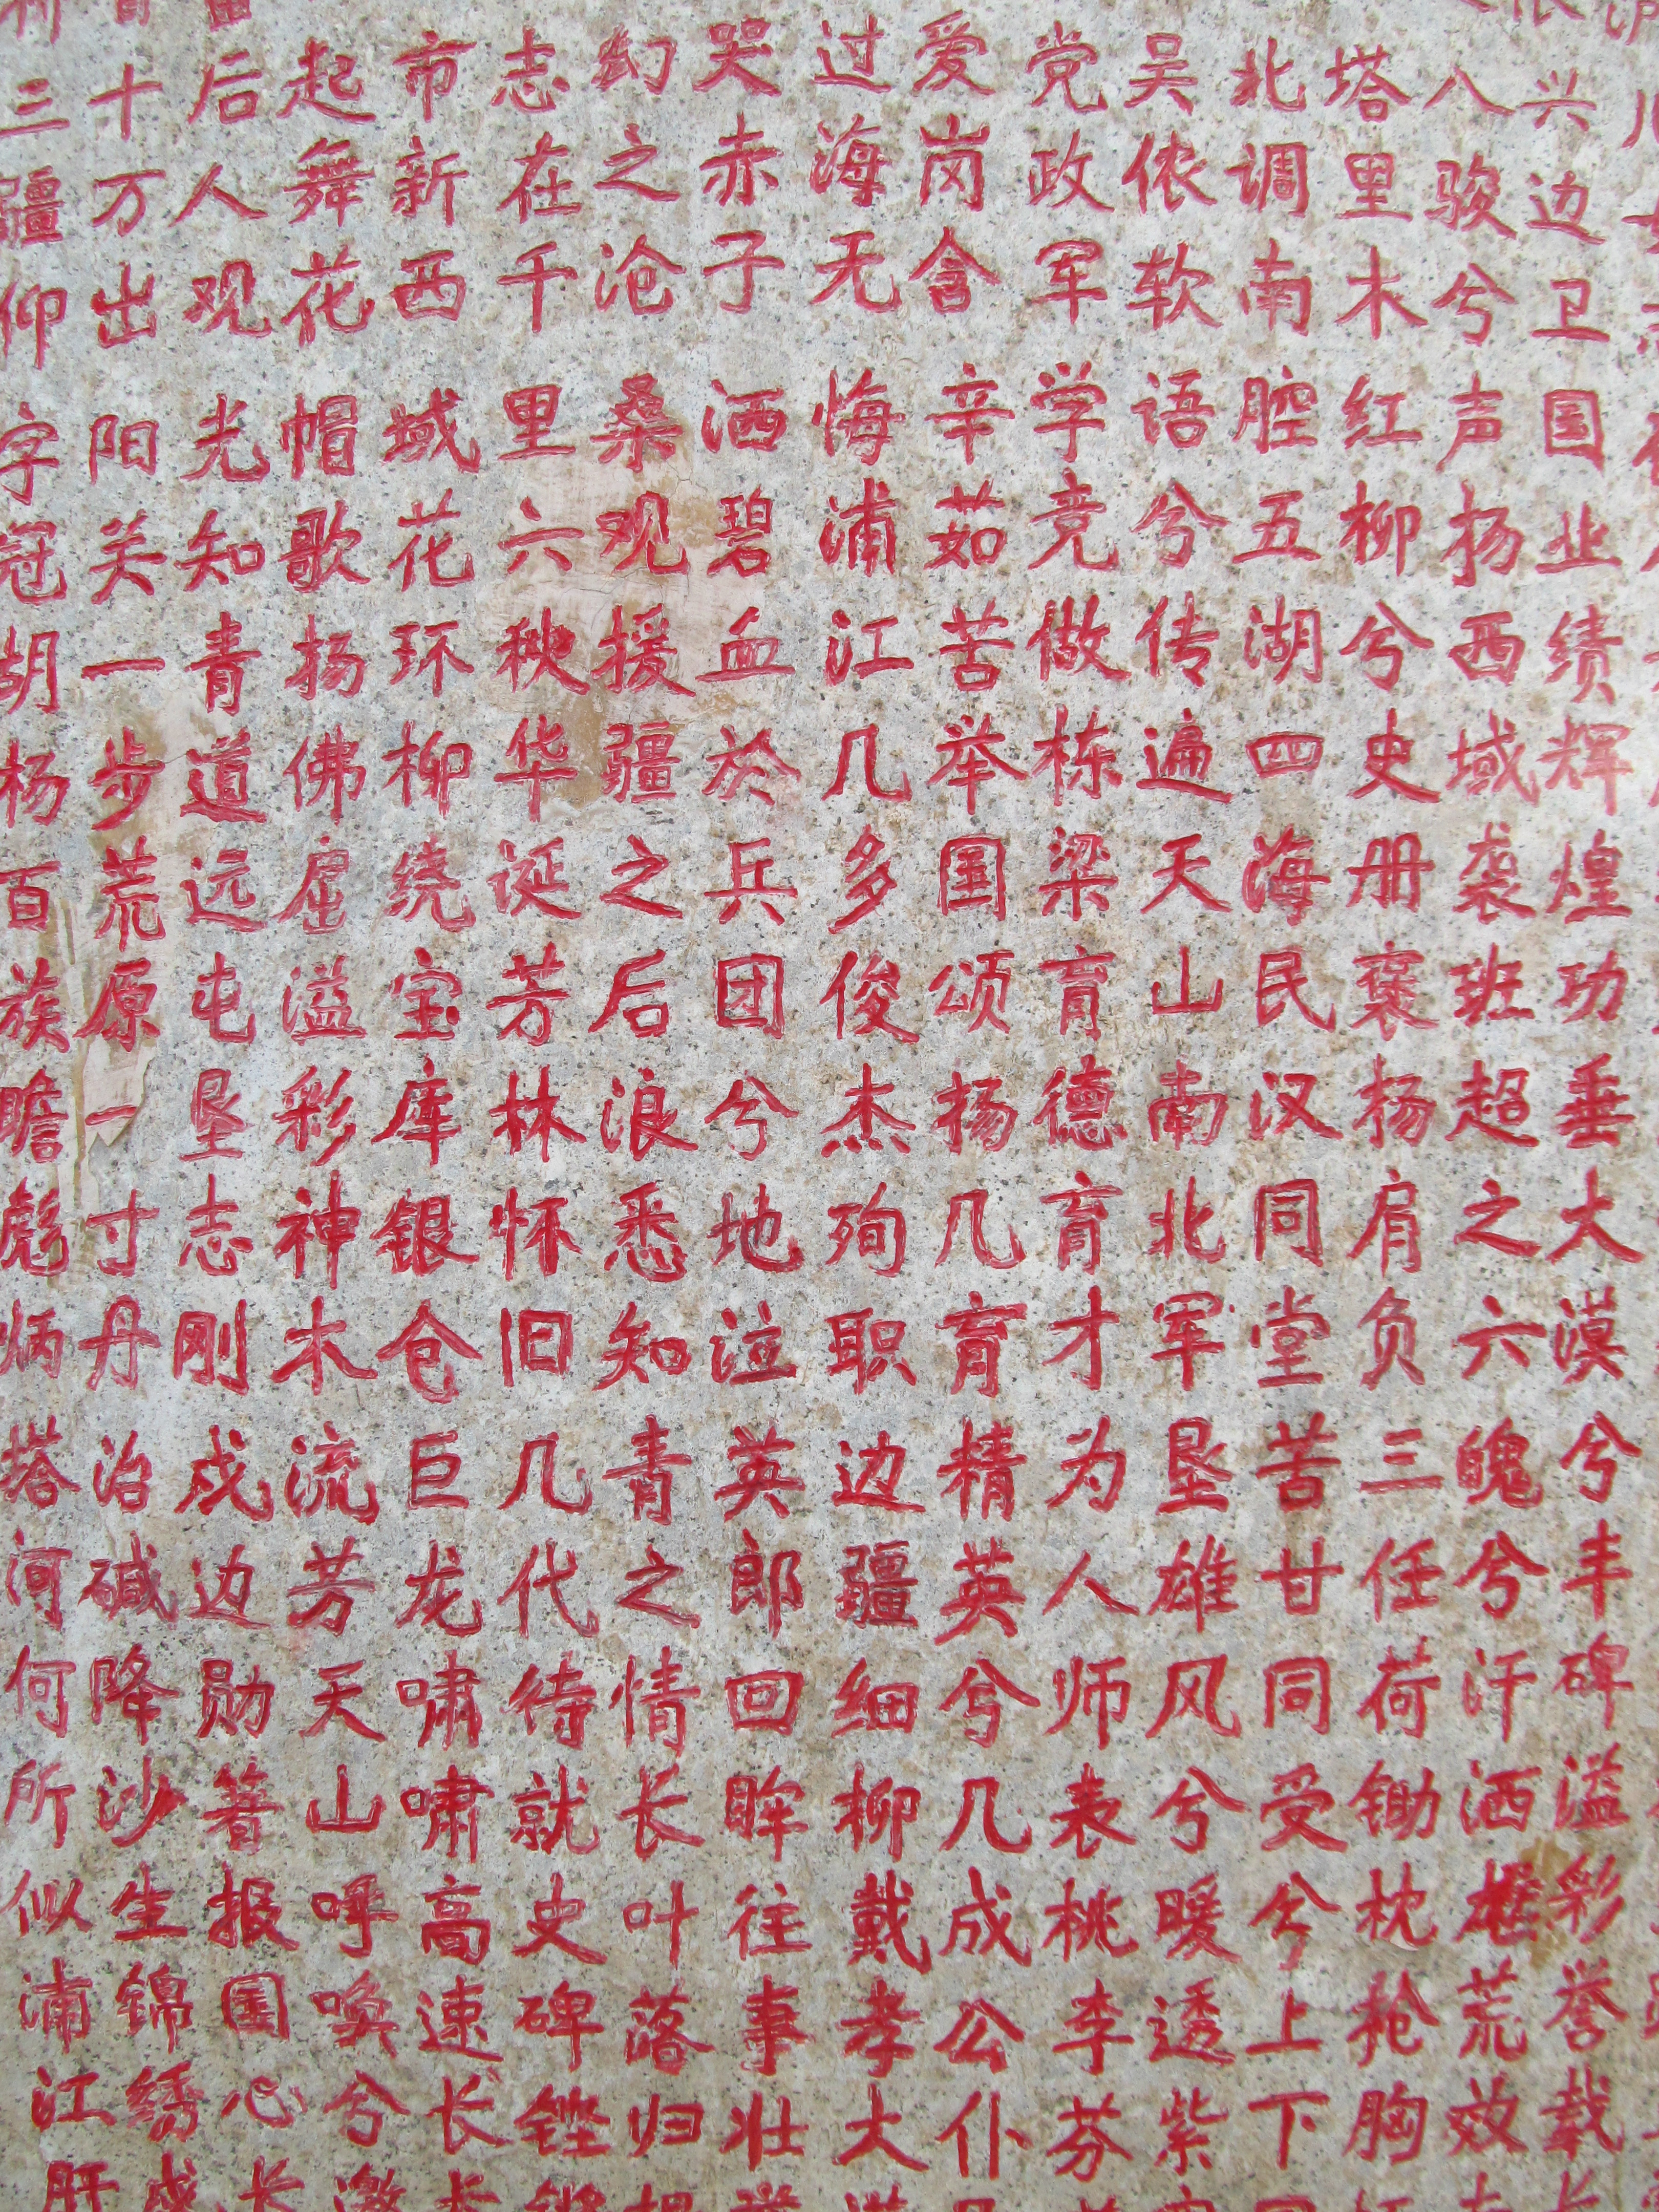 兴边卫国业绩辉煌功垂大漠兮丰碑溢彩誉载
八骏兮声扬西域袭班超之六魄兮汗洒荒效
塔里木红柳兮史册褒扬肩负三任荷锄枕枪胸
北调南腔五湖四海民汉同堂苦甘同受兮上下
吴侬软语兮传遍天山南北军垦雄风兮暖透紫
党政军学竞做栋梁育德育才为人师表桃李芬
爱岗含辛茹苦举国颂扬几育精英兮几成公仆
过海无悔浦江几多俊杰殉职边疆细柳戴孝大
哭赤子洒碧血於兵团兮地泣英郎回眸往事壮
幻之沧桑观援疆之后浪悉知青之情长叶落归
志在千里六秩华诞芳林怀旧几代待就史碑铿
市新西域花环柳绕宝库银仓巨龙啸啸高速长
起舞花帽歌扬佛窟溢彩神木流芳天山呼唤兮
后人观光知青道远屯垦志刚戍边勋著报国心
十万出阳关一步荒原一寸丹治碱降沙生锦绣
三疆仰字冠胡杨百族瞻彪炳塔河何所似浦江肝